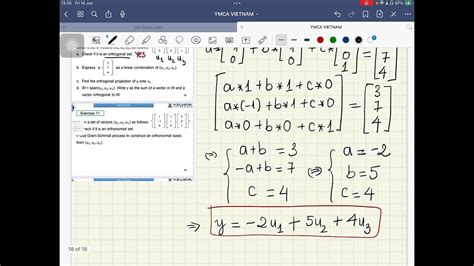 13:20 Fri 14 Jun
YMCA VIETNAM
YMCA VIETNAM
a. Check if it is an orthogonal set yes
u1 u2 u3
b. Express y = as a linear combination of {u1, u2, u3}
c. Find the orthogonal projection of y onto u1
d. W = span{u1, u2}. Write y as the sum of a vector in W and a
vector orthogonal to W
Exercise 11
a set of vectors {u1, u2, u3} as follows
check if it is an orthonormal set
Gram-Schmidt process to construct an orthonormal basis
from {u1, u2, u3}
18 of 18
[a*1 + b*1 + c*0] [3]
[a*(-1) + b*1 + c*0] = [7]
[a*0 + b*0 + c*1] [4]
⇒ { a+b = 3 ⇒ { a = -2
-a+b = 7 b = 5
c = 4 c = 4
⇒ y = -2u1 + 5u2 + 4u3